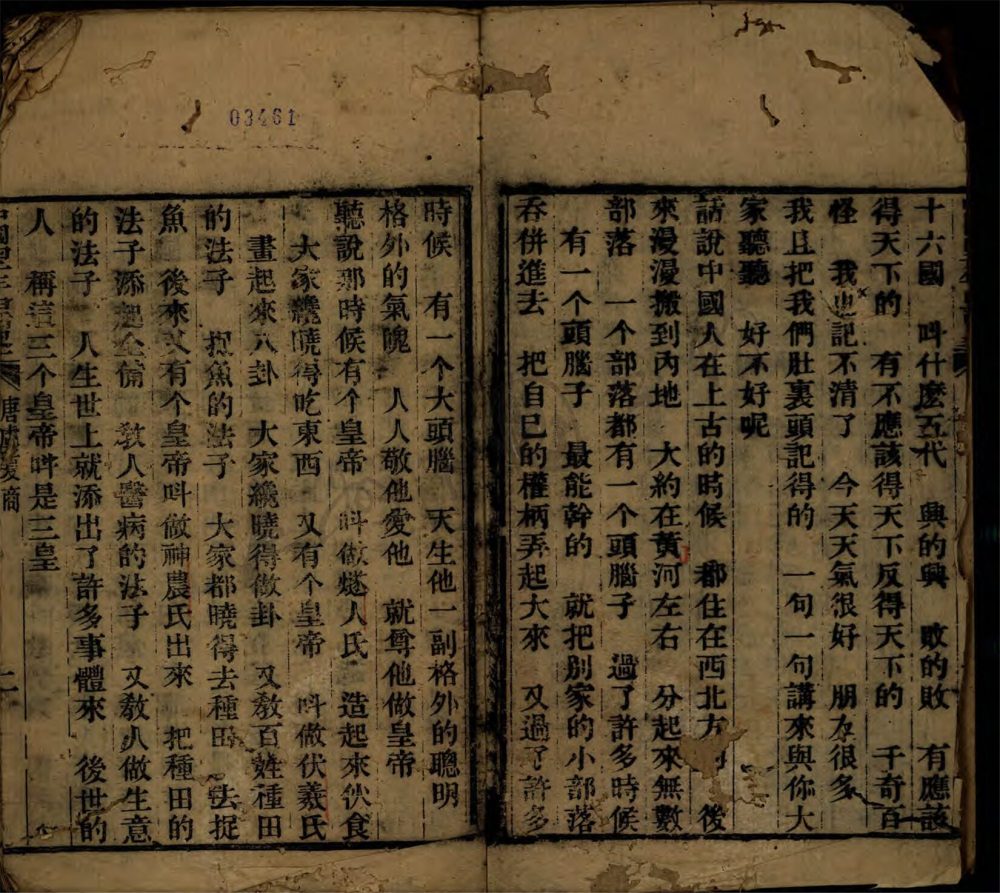 十六國　呌什麽五代　興的興　敗的敗　有應該
得天下的　有不應該得天下反得天下的　千奇百
怪　我也記不清了　今天天氣很好　朋友很多
我且把我們肚裏頭記得的　一句一句講來與你大
家聽聽　好不好呢
話說中國人在上古的時候　都住在西北方　後
來漫漫搬到內地　大約在黃河左右　分起來無數
部落　一个部落都有一个頭腦子　過了許多時候
有一个頭腦子　最能幹的　就把別家的小部落
吞併進去　把自已的權柄弄起大來　又過了許多
時候　有一个大頭腦　天生他一副格外的聰明
格外的氣魄　人人敬他愛他　就尊他做皇帝
聽說那時候有个皇帝　呌做燧人氏　造起來伙食
大家纔曉得吃東西　又有个皇帝　呌做伏羲氏
畫起來八卦　大家纔曉得做卦　又敎百姓種田
的法子　捉魚的法子　大家都曉得去種田　去捉
魚　後來又有个皇帝呌做神農氏出來　把種田的
法子添起全備　敎人醫病的法子　又敎人做生意
的法子　人生世上就添出了許多事體來　後世的
人　稱這三个皇帝呌是三皇
唐虞夏商
二
03461